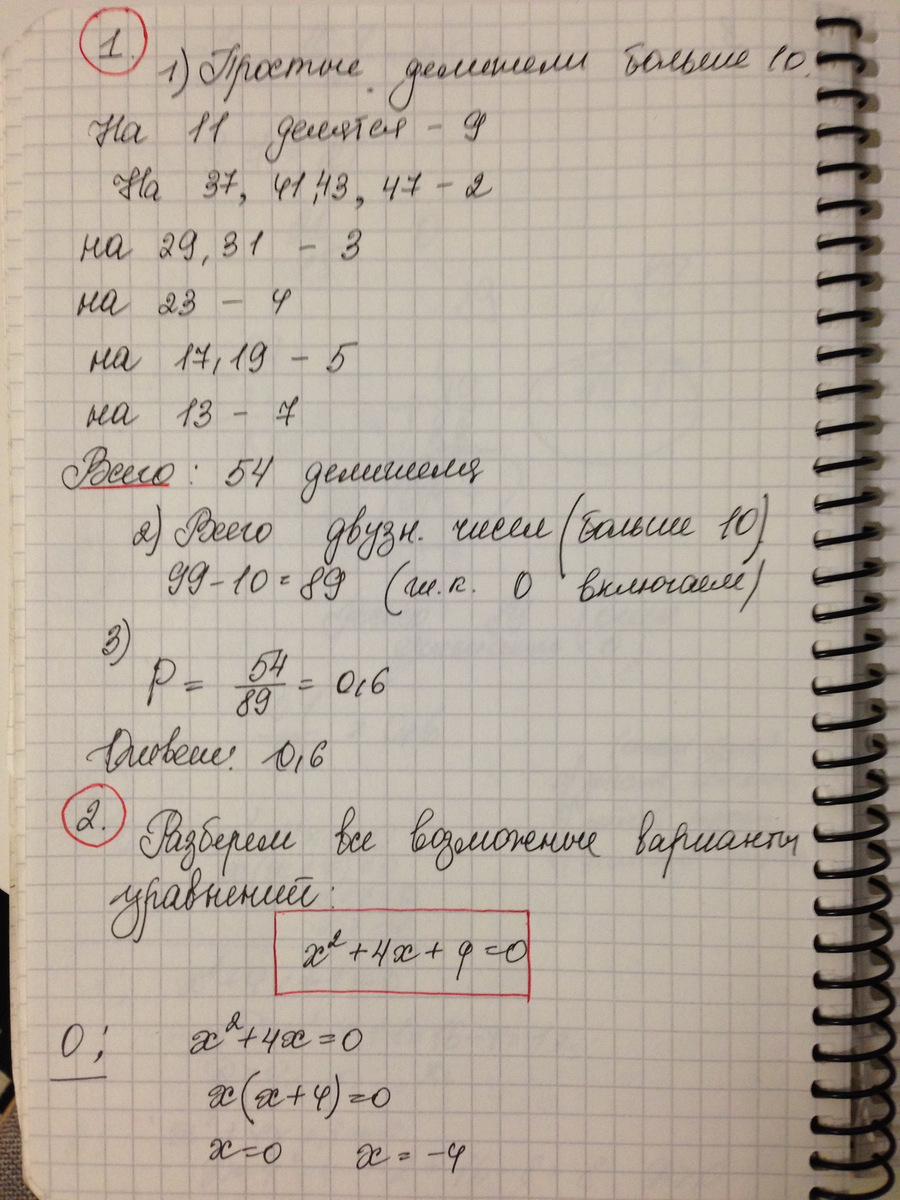 1.
1) Простые делители больше 10.
На 11 делятся - 9
На 37, 41, 43, 47 - 2
на 29, 31 - 3
на 23 - 4
на 17, 19 - 5
на 13 - 7
Всего: 54 делителя
2) Всего двузн. чисел (больше 10)
99-10=89 (т.к. 0 включаем)
3)
P = 54/89 = 0,6
Ответ: 0,6
2. Разберем все возможные варианты
уравнений:
x²+4x+q=0
0; x²+4x=0
x(x+4)=0
x=0 x=-4